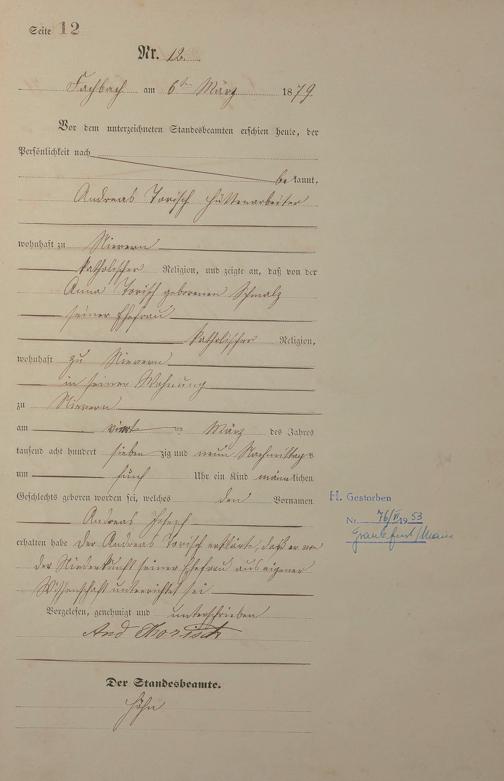 Seite 12
Nr. 12.
Fachbach am 6ten März 1879.
Vor dem unterzeichneten Standesbeamten erschien heute, der
Persönlichkeit nach
be kannt,
Andreas Torisch Hüttenarbeiter
wohnhaft zu Nievern
katholischer Religion, und zeigte an, daß von der
Anna Torisch geborenen Schmalz
seiner Ehefrau
katholischer Religion,
wohnhaft zu Nievern
in seiner Wohnung
zu Nievern
am März des Jahres
tausend acht hundert sieben zig und neun Nachmittags
um fünf Uhr ein Kind männlichen
Geschlechts geboren worden sei, welches den Vornamen
Andreas Joseph
erhalten habe Der Andreas Torisch erklärte, daß er von
der Niederkunft seiner Ehefrau aus eigener
Wissenschaft unterrichtet sei
Vorgelesen, genehmigt und unterschrieben
And Thorisch
Der Standesbeamte.
Höhn
H. Gestorben
Nr. 76/ 1953
Frankfurt/Main